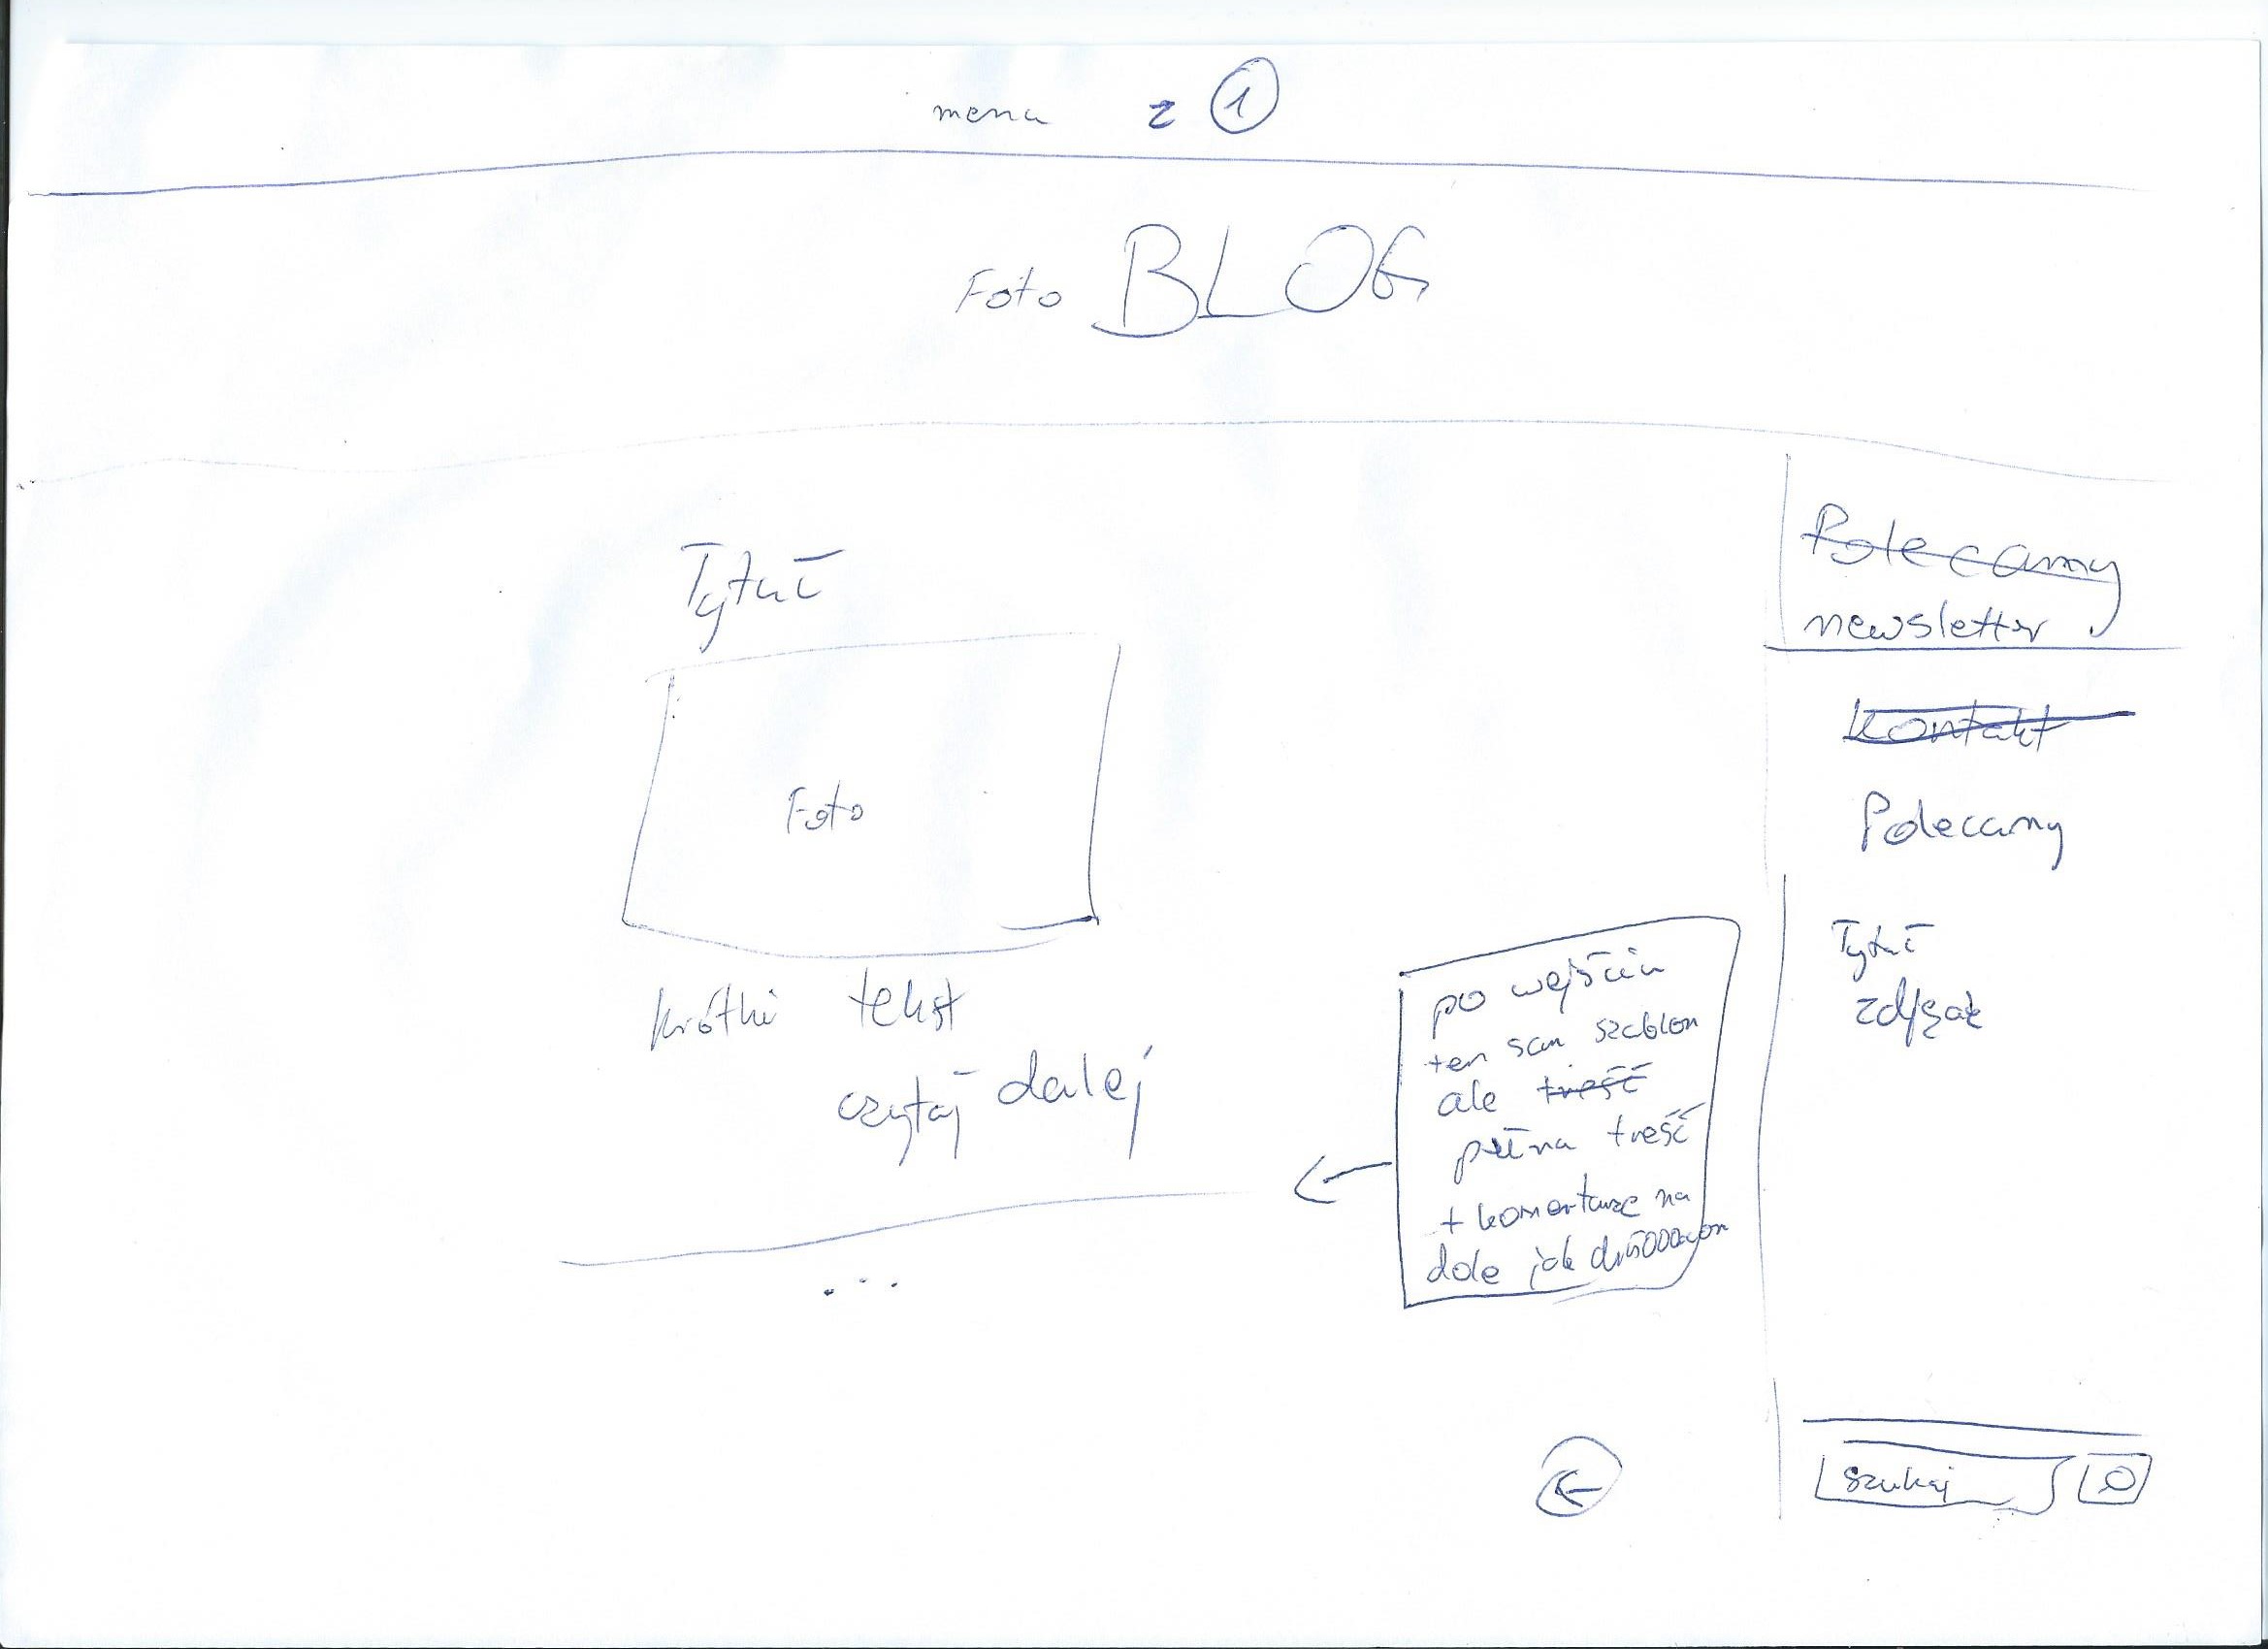 menu z 1
Foto BLOG
Tytuł
Foto
krótki tekst
czytaj dalej
po wejściu
ten sam szablon
ale treść
pełna treść
+ komentarze na
dole jak
Polecamy
newsletter
Kontakt
Polecamy
Tytuł
zdjęcie
szukaj